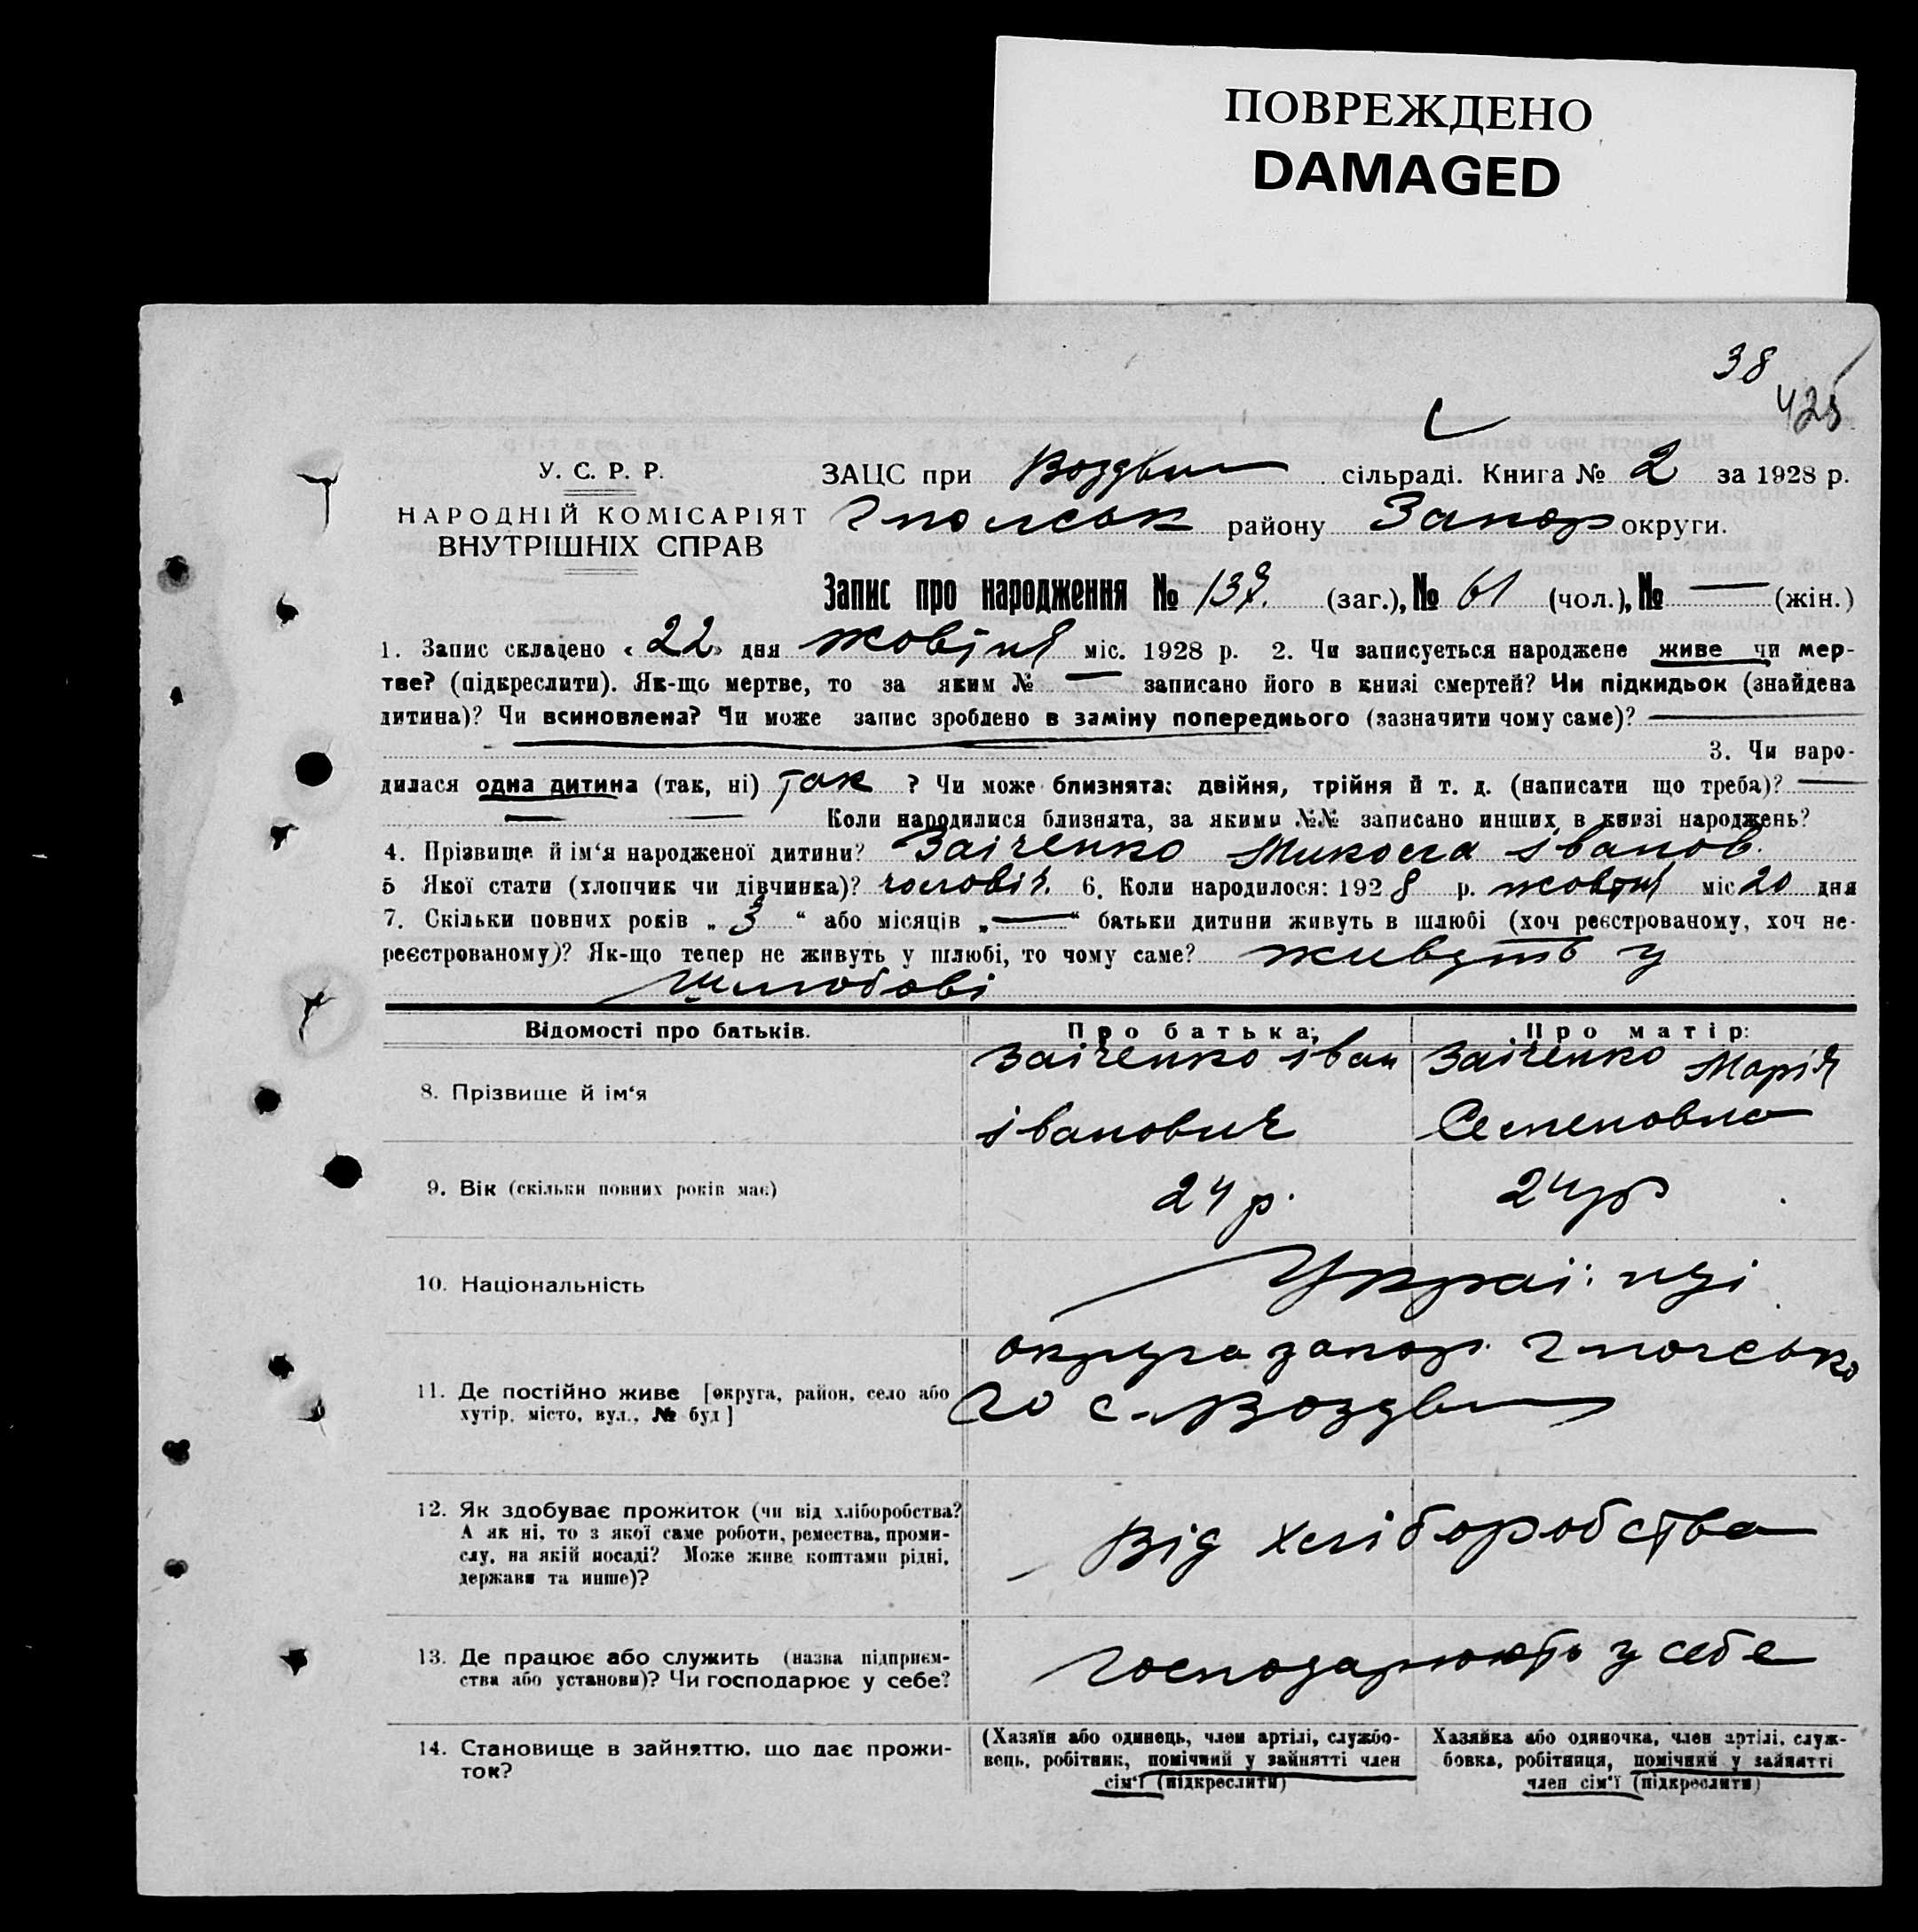 ПОВРЕЖДЕНО
DAMAGED
38
425
У. С. Р. Р.
НАРОДНІЙ КОМІСАРІЯТ
ВНУТРІШНІХ СПРАВ
ЗАЦС при Воздвиж сільраді. Книга № 2 за 1928 р.
району Запор округи.
Запис про народження № 137. (заг.), № 61 (чол.), № — (жін.)
1. Запис складено «22» дня жовтня міс. 1928 р. 2. Чи записується народжене живе чи мер-
тве? (підкреслити). Як-що мертве, то за яким № — записано його в книзі смертей? Чи підкидьок (знайдена
дитина)? Чи всиновлена? Чи може запис зроблено в заміну попереднього (зазначити чому саме)? —
3. Чи наро-
дилася одна дитина (так, ні) так ? Чи може близнята: двійня, трійня й т. д. (написати що треба)? —
— — Коли народилися близнята, за якими №№ записано инших в книзі народжень?
4. Прізвище й ім'я народженої дитини? Заіченко Микола іванов.
5 Якої стати (хлопчик чи дівчинка)? чоловіч. 6. Коли народилося: 1928 р. жовтня міс 20 дня
7. Скільки повних років „ 3 “ або місяців „ — “ батьки дитини живуть в шлюбі (хоч реєстрованому, хоч не-
реєстрованому)? Як-що тепер не живуть у шлюбі, то чому саме? живуть у
шлюбові
Відомості про батьків. Про батька: Про матір:
8. Прізвище й ім'я
Заіченко іван
іванович
Заіченко Марія
Семеновна
9. Вік (скільки повних років має) 24 р. 24 р
10. Національність Украі:нці
11. Де постійно живе [округа, район, село або
хутір, місто, вул., № буд]
округа запор.
го с. Воздвиж
12. Як здобуває прожиток (чи від хліборобства?
А як ні, то з якої саме роботи, ремества, проми-
слу, на якій посаді? Може живе коштами рідні,
держави та инше)?
Від хліборобства
13. Де працює або служить (назва підприєм-
ства або установи)? Чи господарює у себе?
господарюють у себе
14. Становище в зайняттю, що дає прожи-
ток?
(Хазяїн або одинець, член артілі, службо-
вець, робітник, помічний у зайнятті член
сім'ї (підкреслити)
Хазяйка або одиночка, член артілі, служ-
бовка, робітниця, помічний у зайнятті
член сім'ї (підкреслити)